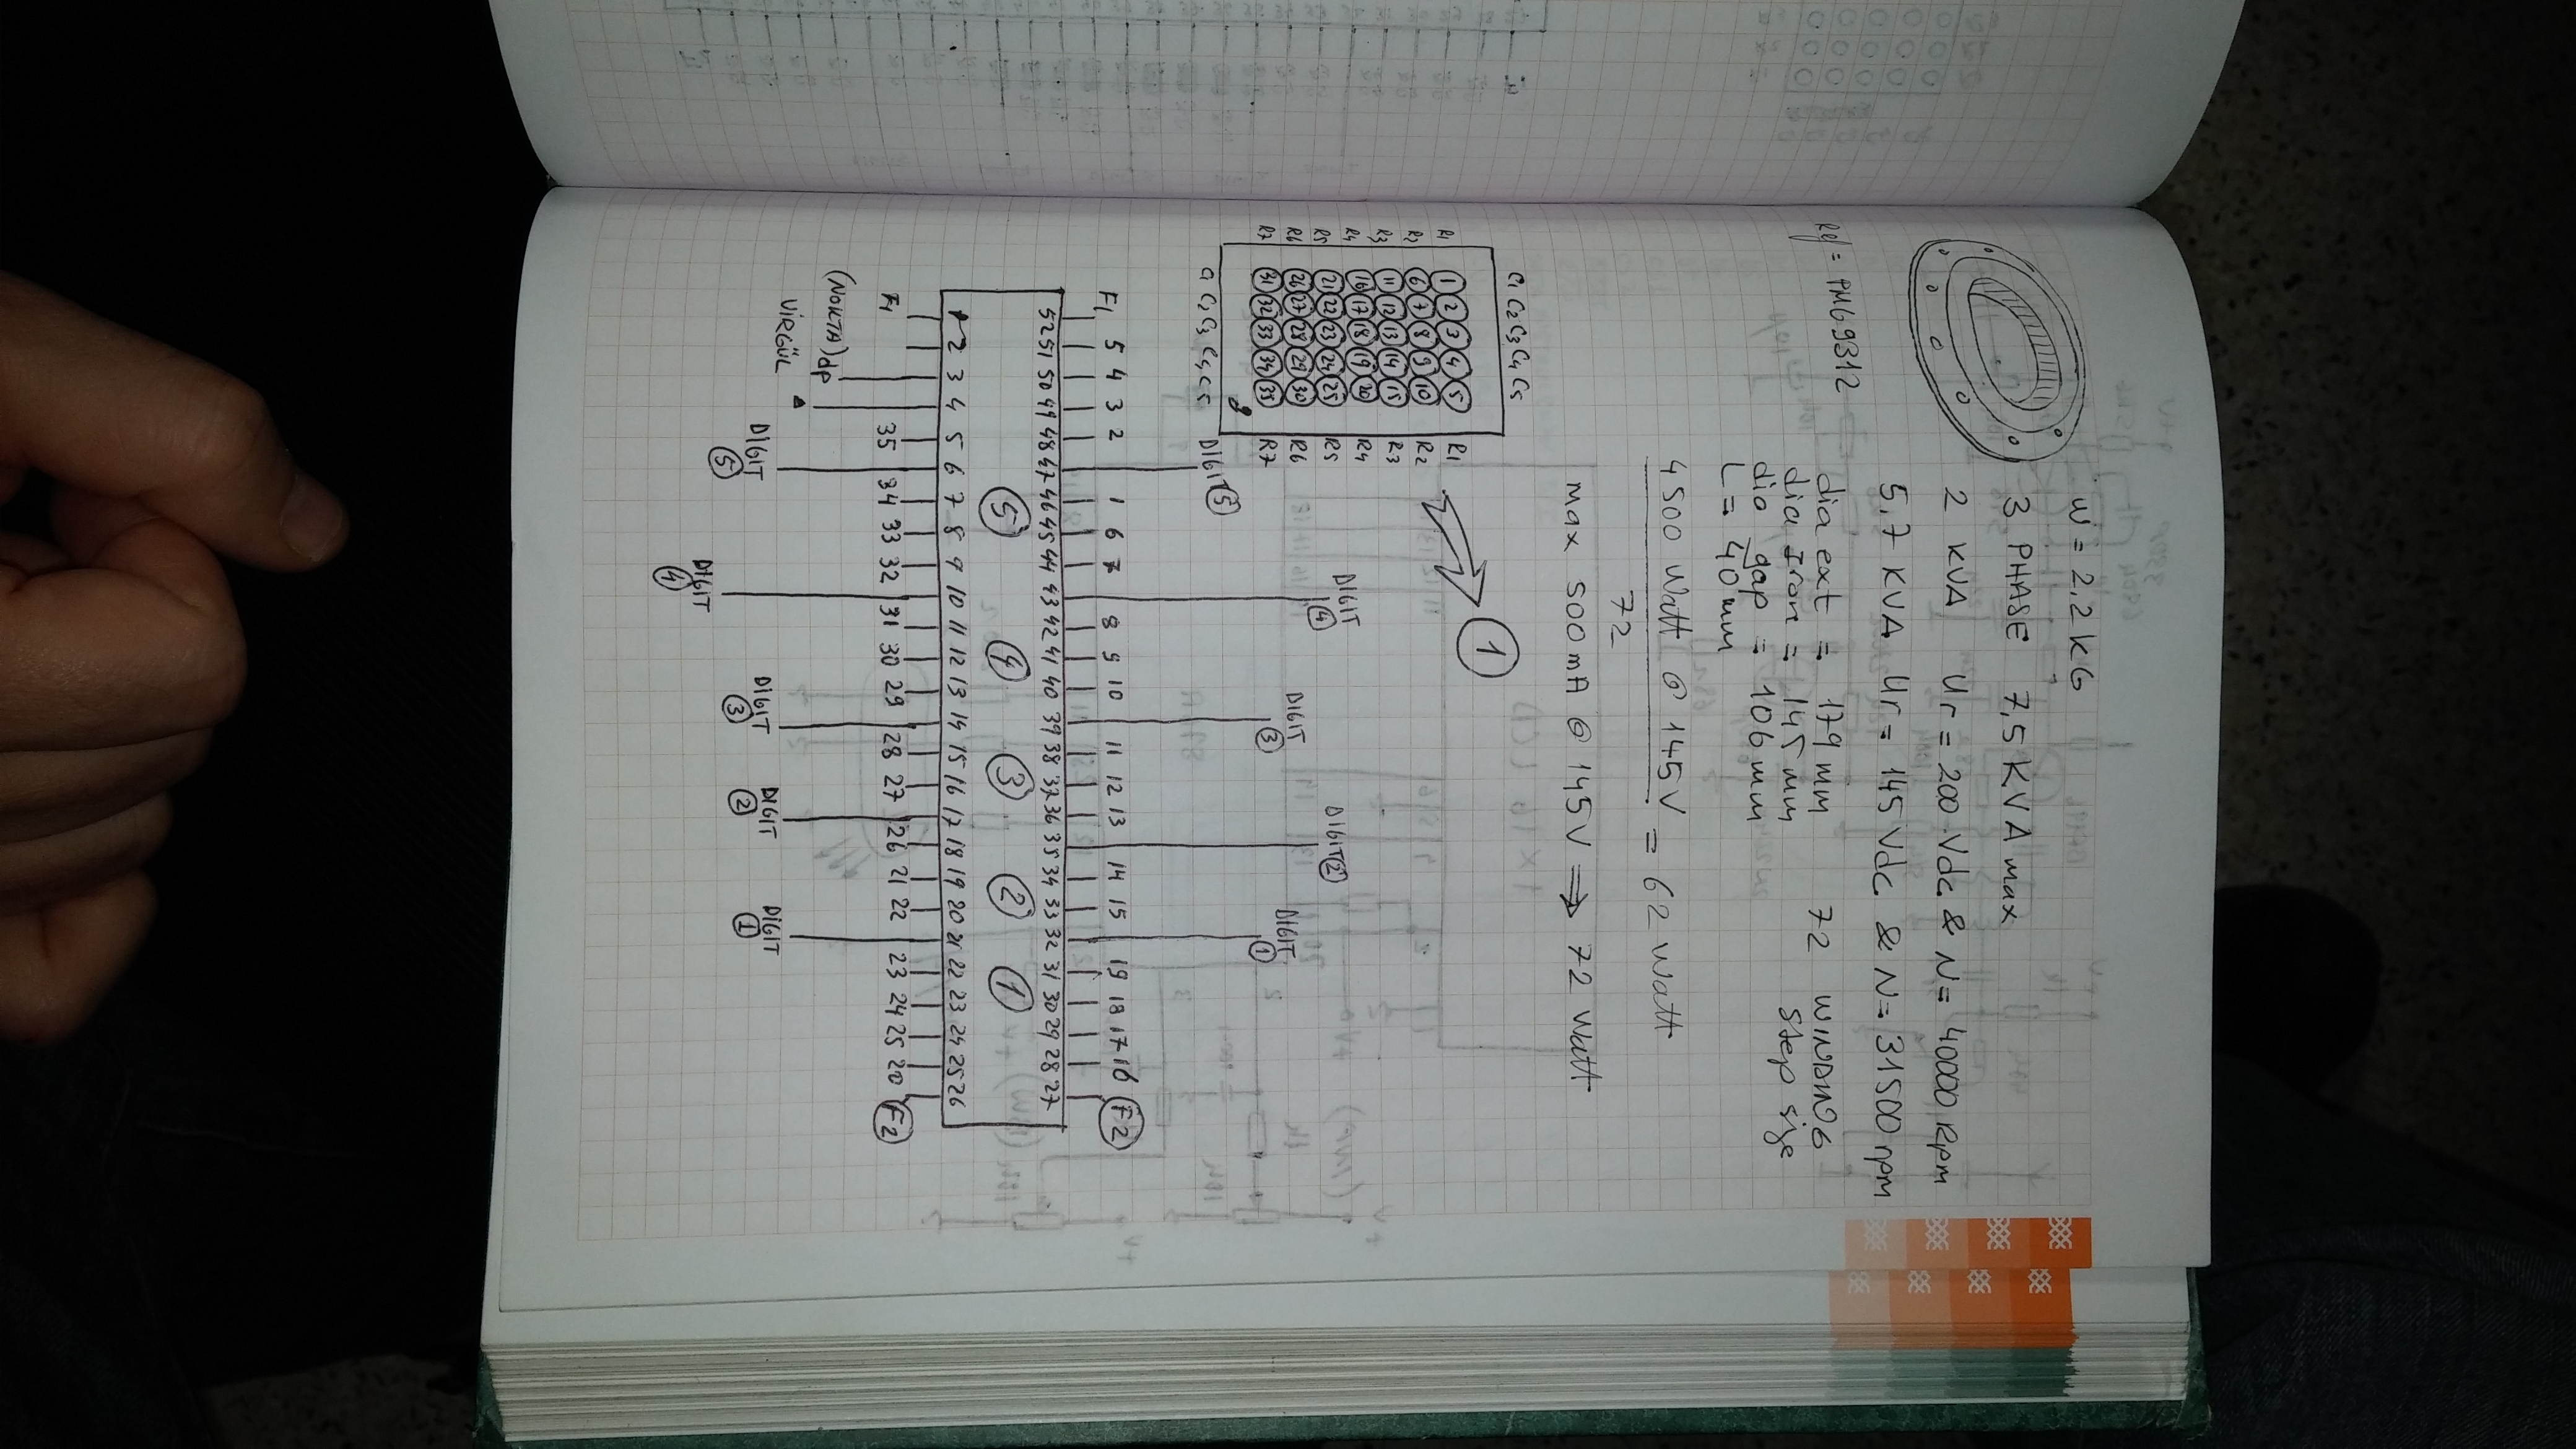 W = 2.2 KG
3 PHASE 7,5 KVA max
2 KVA Ur = 200 Vdc & N = 40000 Rpm
5,7 KVA Ur = 145 Vdc & N = 31500 rpm
Ref = PMG9312
dia ext = 179 mm 72 WINDING
dia Iron = 145 mm Step size
dia gap = 106 mm
L = 40 mm
4500 Watt @ 145V = 62 Watt
72
max 500mA @ 145V ⇒ 72 Watt
C1 C2 C3 C4 C5
1
R1 1 2 3 4 5 R1
R2 6 7 8 9 10 R2
R3 11 12 13 14 15 R3
R4 16 17 18 19 20 R4
R5 21 22 23 24 25 R5
R6 26 27 28 29 30 R6
R7 31 32 33 34 35 R7
C1 C2 C3 C4 C5
DIGIT 5
DIGIT 4
DIGIT 3
DIGIT 2
DIGIT 1
F1 5 4 3 2 1 6 7 8 9 10 11 12 13 14 15 19 18 17 16 F2
52 51 50 49 48 47 46 45 44 43 42 41 40 39 38 37 36 35 34 33 32 31 30 29 28 27
5 4 3 2 1
1 2 3 4 5 6 7 8 9 10 11 12 13 14 15 16 17 18 19 20 21 22 23 24 25 26
F1 35 34 33 32 31 30 29 28 27 26 21 22 23 24 25 20 F2
(NOKTA) dp
VİRGÜL
DIGIT 5
DIGIT 4
DIGIT 3
DIGIT 2
DIGIT 1